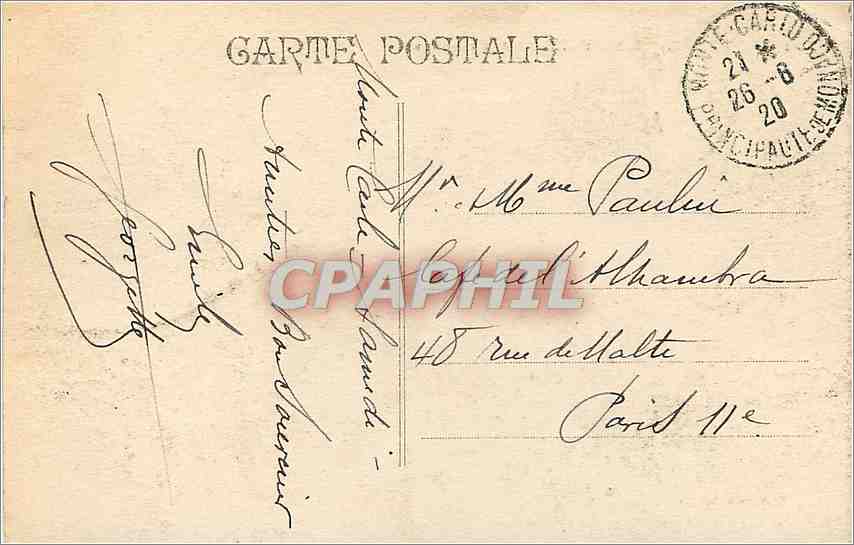 CARTE POSTALE
MONTE-CARLO
21 *
26 - 6
20
PRINCIPAUTÉ DE MONACO
Monte Carlo - Samedi -
Amitiés Bon Souvenir
Emile
Georgette
Mr. Mme Paulin
Café de l'Alhambra
48 rue de Malte
Paris 11e
CPAPHIL